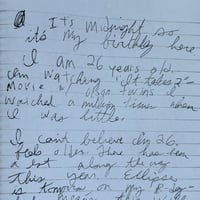 It's midnight so
it's my birthday here
I am 26 years old.
I'm watching "It takes 2"
movie w/ Olson twins I
watched a million times when
I was little.
I can't believe I'm 26.
feels older. There has been
a lot along the way
this year. Eclipse
is tomorrow on my B-day